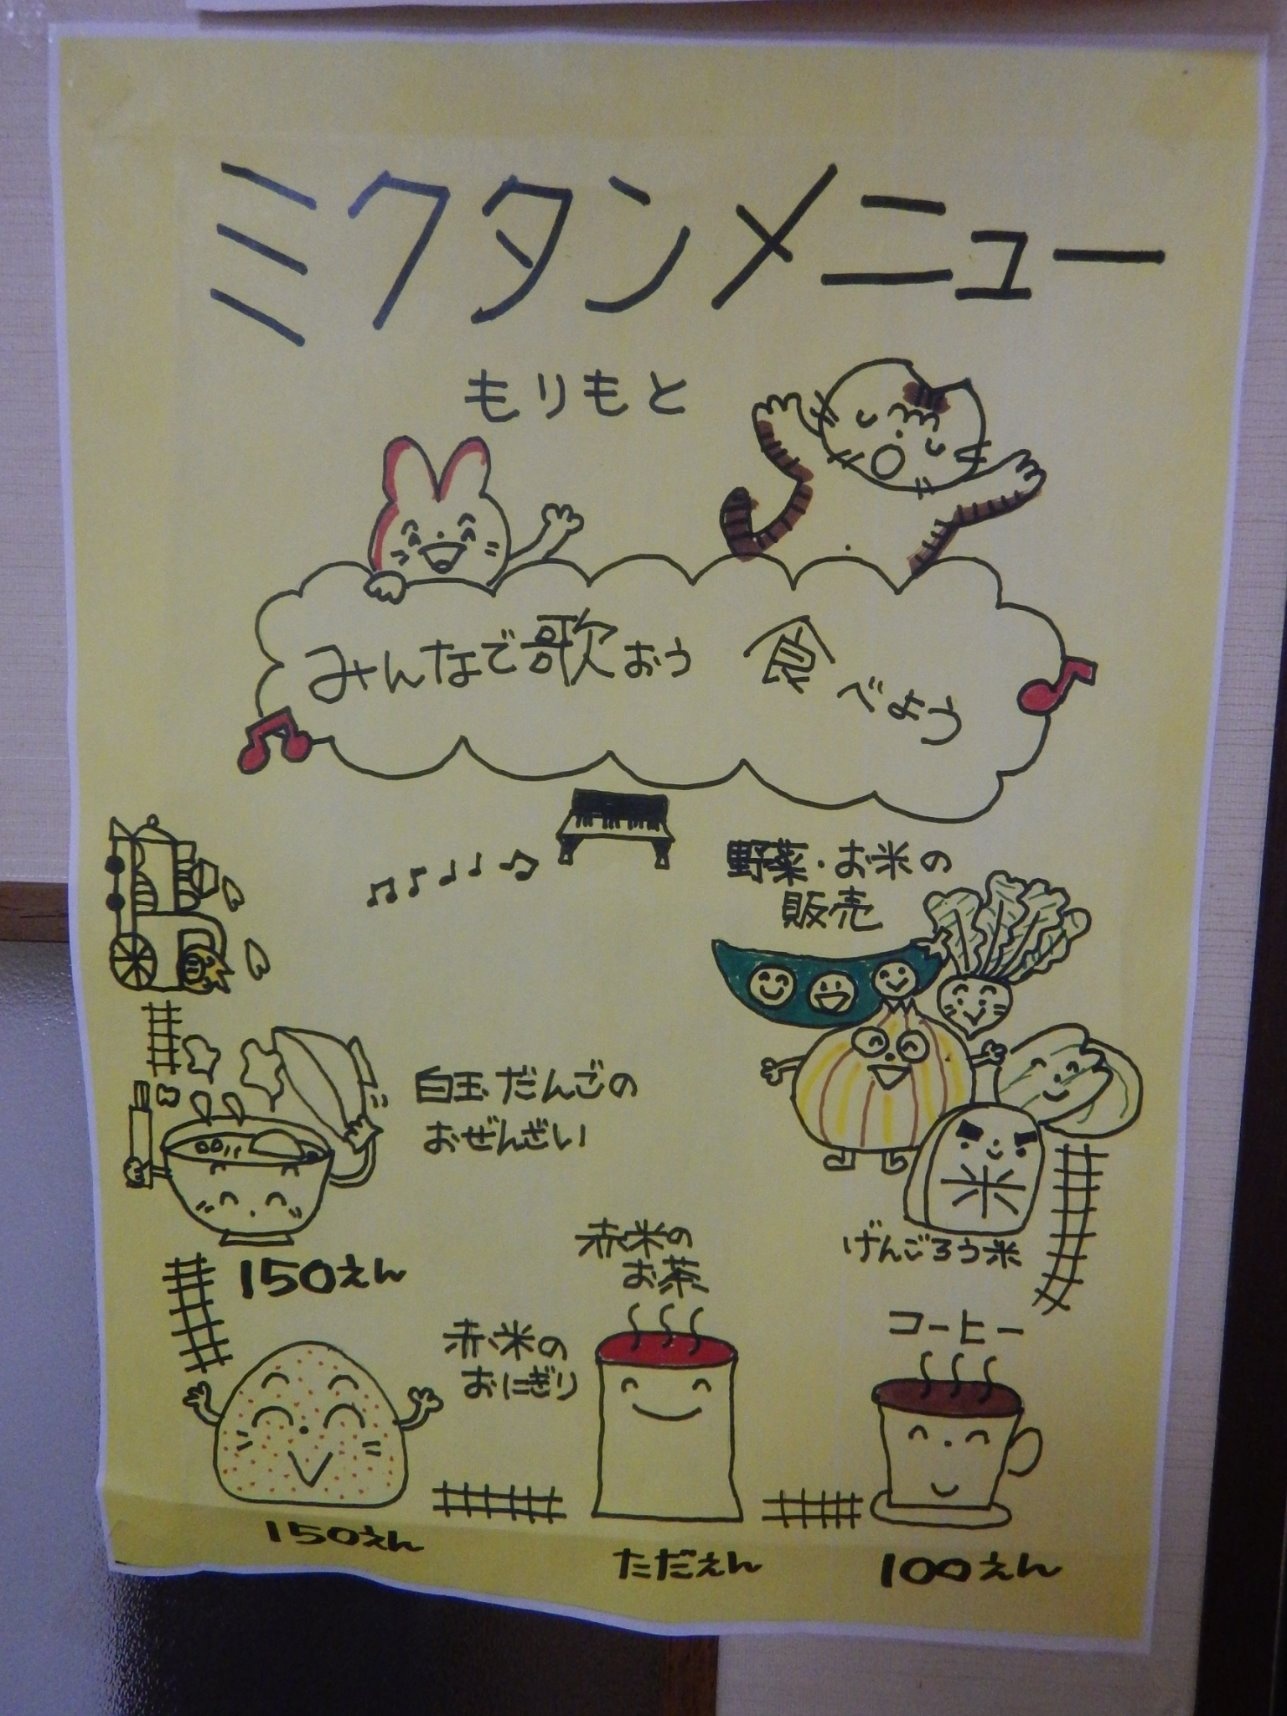 ミクタンメニュー
もりもと
みんなで歌おう 食べよう
野菜・お米の
販売
白玉だんごの
おぜんざい
150えん
米
げんごろう米
赤米の
お茶
コーヒー
赤米の
おにぎり
150えん
ただえん
100えん